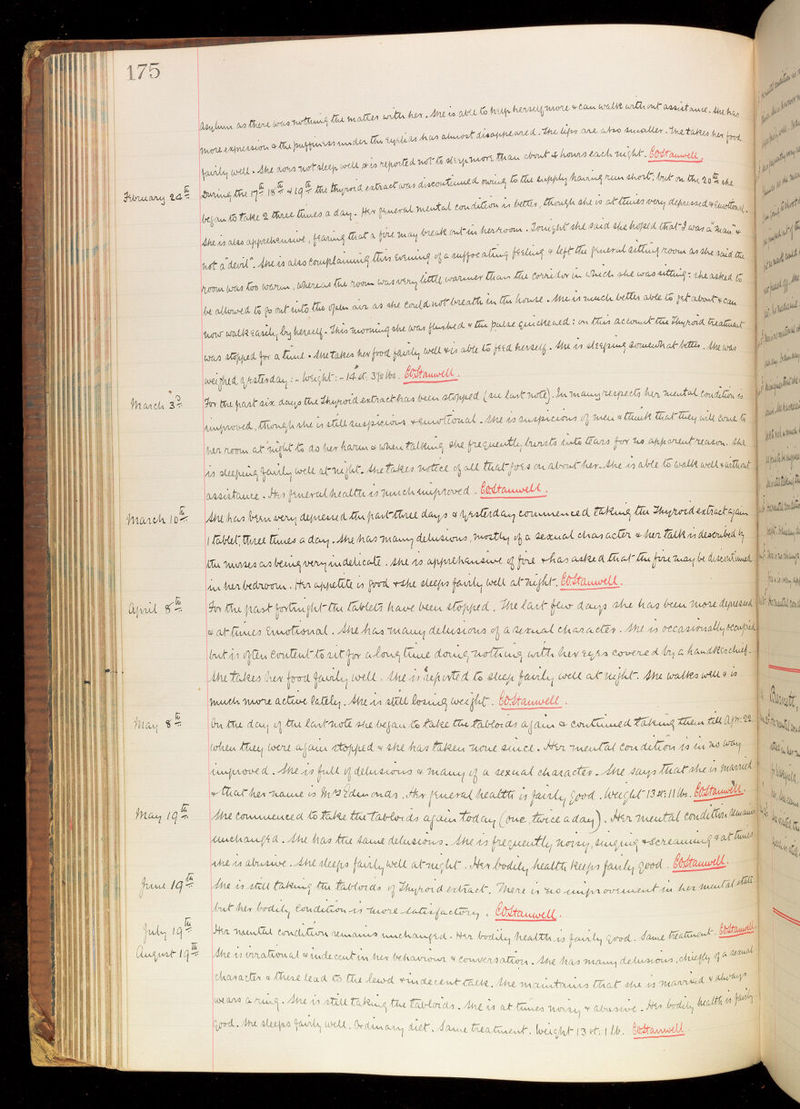 175
Asylum as there was nothing the matter with her. She is able to help herself more & can walk without assistance. She has
more expression & the puffiness under the eyelids has almost disappeared. The lips are also smaller. She takes her food
fairly well. She does not sleep well & is reported not to sleep more than about 4 hours each night. CStanwell
February 24th During the 17th 18th & 19th the thyroid extract was discontinued owing to the supply having run short, but on the 20th she
began to take 2 three times a day. Her general mental condition is better, though she is at times very depressed & emotional.
She is also apprehensive, fearing that a fire may break out in her room. Tonight she said she hoped that "I was a "man" &
not a "devil". She is also complaining this evening of a suffocating feeling & left the general sitting room as she said the
room was too warm, whereas the room was very little warmer than the corridor in which she was sitting: she asked to
be allowed to go out into the open air as she could not breath in the house. She is much better able to get about & can
now walk easily by herself. This morning she was flushed & the pulse quickened: on this account the Thyroid treatment
was stopped for a time. She takes her food fairly well & is able to feed herself. She is sleeping somewhat better. She was
weighed yesterday:- Weight:- 14 st. 3½ lbs. CStanwell.
March 3rd For the past six days the Thyroid extract has been stopped (see last note). In many respects her mental condition is
improved, though she is still suspicious & emotional. She is suspicious of men & thinks that they will come to
her room at night to do her harm & when talking she frequently bursts into tears for no apparent reason. She
is sleeping fairly well at night. She takes notice of all that goes on about her. She is able to walk well & without
assistance. Her general health is much improved. CStanwell.
March 10th She has been very depressed the past three days & yesterday commenced taking the Thyroid extract again
1 tablet three times a day. She has many delusions, mostly of a sexual character & her talk is described by
the nurses as being very indelicate. She is apprehensive of fire & has asked that the fire may be discontinued
in her bedroom. Her appetite is good & she sleeps fairly well at night. CStanwell
April 8th For the past fortnight the tablets have been stopped. The last few days she has been more depressed
& at times emotional. She has many delusions of a sexual character. She is occasionally occupied
but is often content to sit for a long time doing nothing with her eyes covered by a handkerchief.
She takes her food fairly well. She is reported to sleep fairly well at night. She walks well & is
much more active lately. She is still losing weight. CStanwell.
May 8th On the day of the last note she began to take the tabloids again & continued taking them till Apr: 22
when they were again stopped & she has taken none since. Her mental condition is in no way
improved. She is full of delusions & many of a sexual character. She says that she is married
& that her name is Mrs Edmonds. Her general health is fairly good. Weight 13 st 11 lbs. CStanwell
May 19th She commenced to take the tabloids again today (one, twice a day). Her mental condition remains
unchanged. She has the same delusions. She is frequently noisy, singing & screaming & at times
she is abusive. She sleeps fairly well at night. Her bodily health keeps fairly good. CStanwell.
June 19th She is still taking the tabloids of Thyroid extract. There is no improvement in her mental state
but her bodily condition is more satisfactory. CStanwell.
July 19th Her mental condition remains unchanged. Her bodily health is fairly good. Same treatment. CStanwell
August 19th She is irrational & indecent in her behaviour & conversation. She has many delusions, chiefly of a sexual
character & these lead to the lewd & indecent talk. She maintains that she is married & always
wears a ring. She is still taking the tabloids. She is at times noisy & abusive. Her bodily health is fairly
good. She sleeps fairly well. Ordinary diet. Same treatment. Weight 13 st. 1 lb. CStanwell